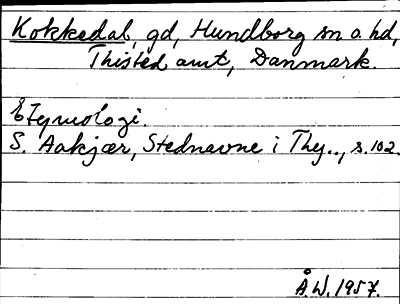 Kokkedal, gd, Hundborg sn o. hd,
Thisted amt, Danmark.
Etymologi.
S. Aakjær, Stednavne i Thy.., s. 102.
Å.W. 1957.